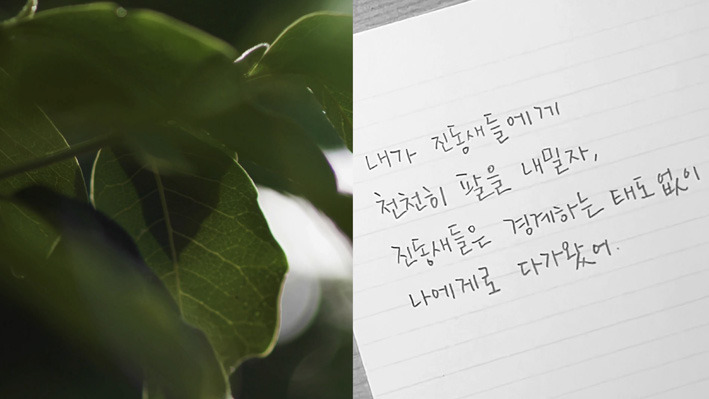 내가 진동새들에게
천천히 팔을 내밀자,
진동새들은 경계하는 태도 없이
나에게로 다가왔어.